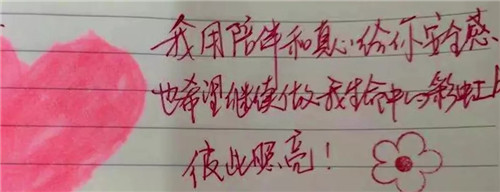 我用陪伴和真心给你安全感、
也希望继续做我生命中的彩虹上
彼此照亮！